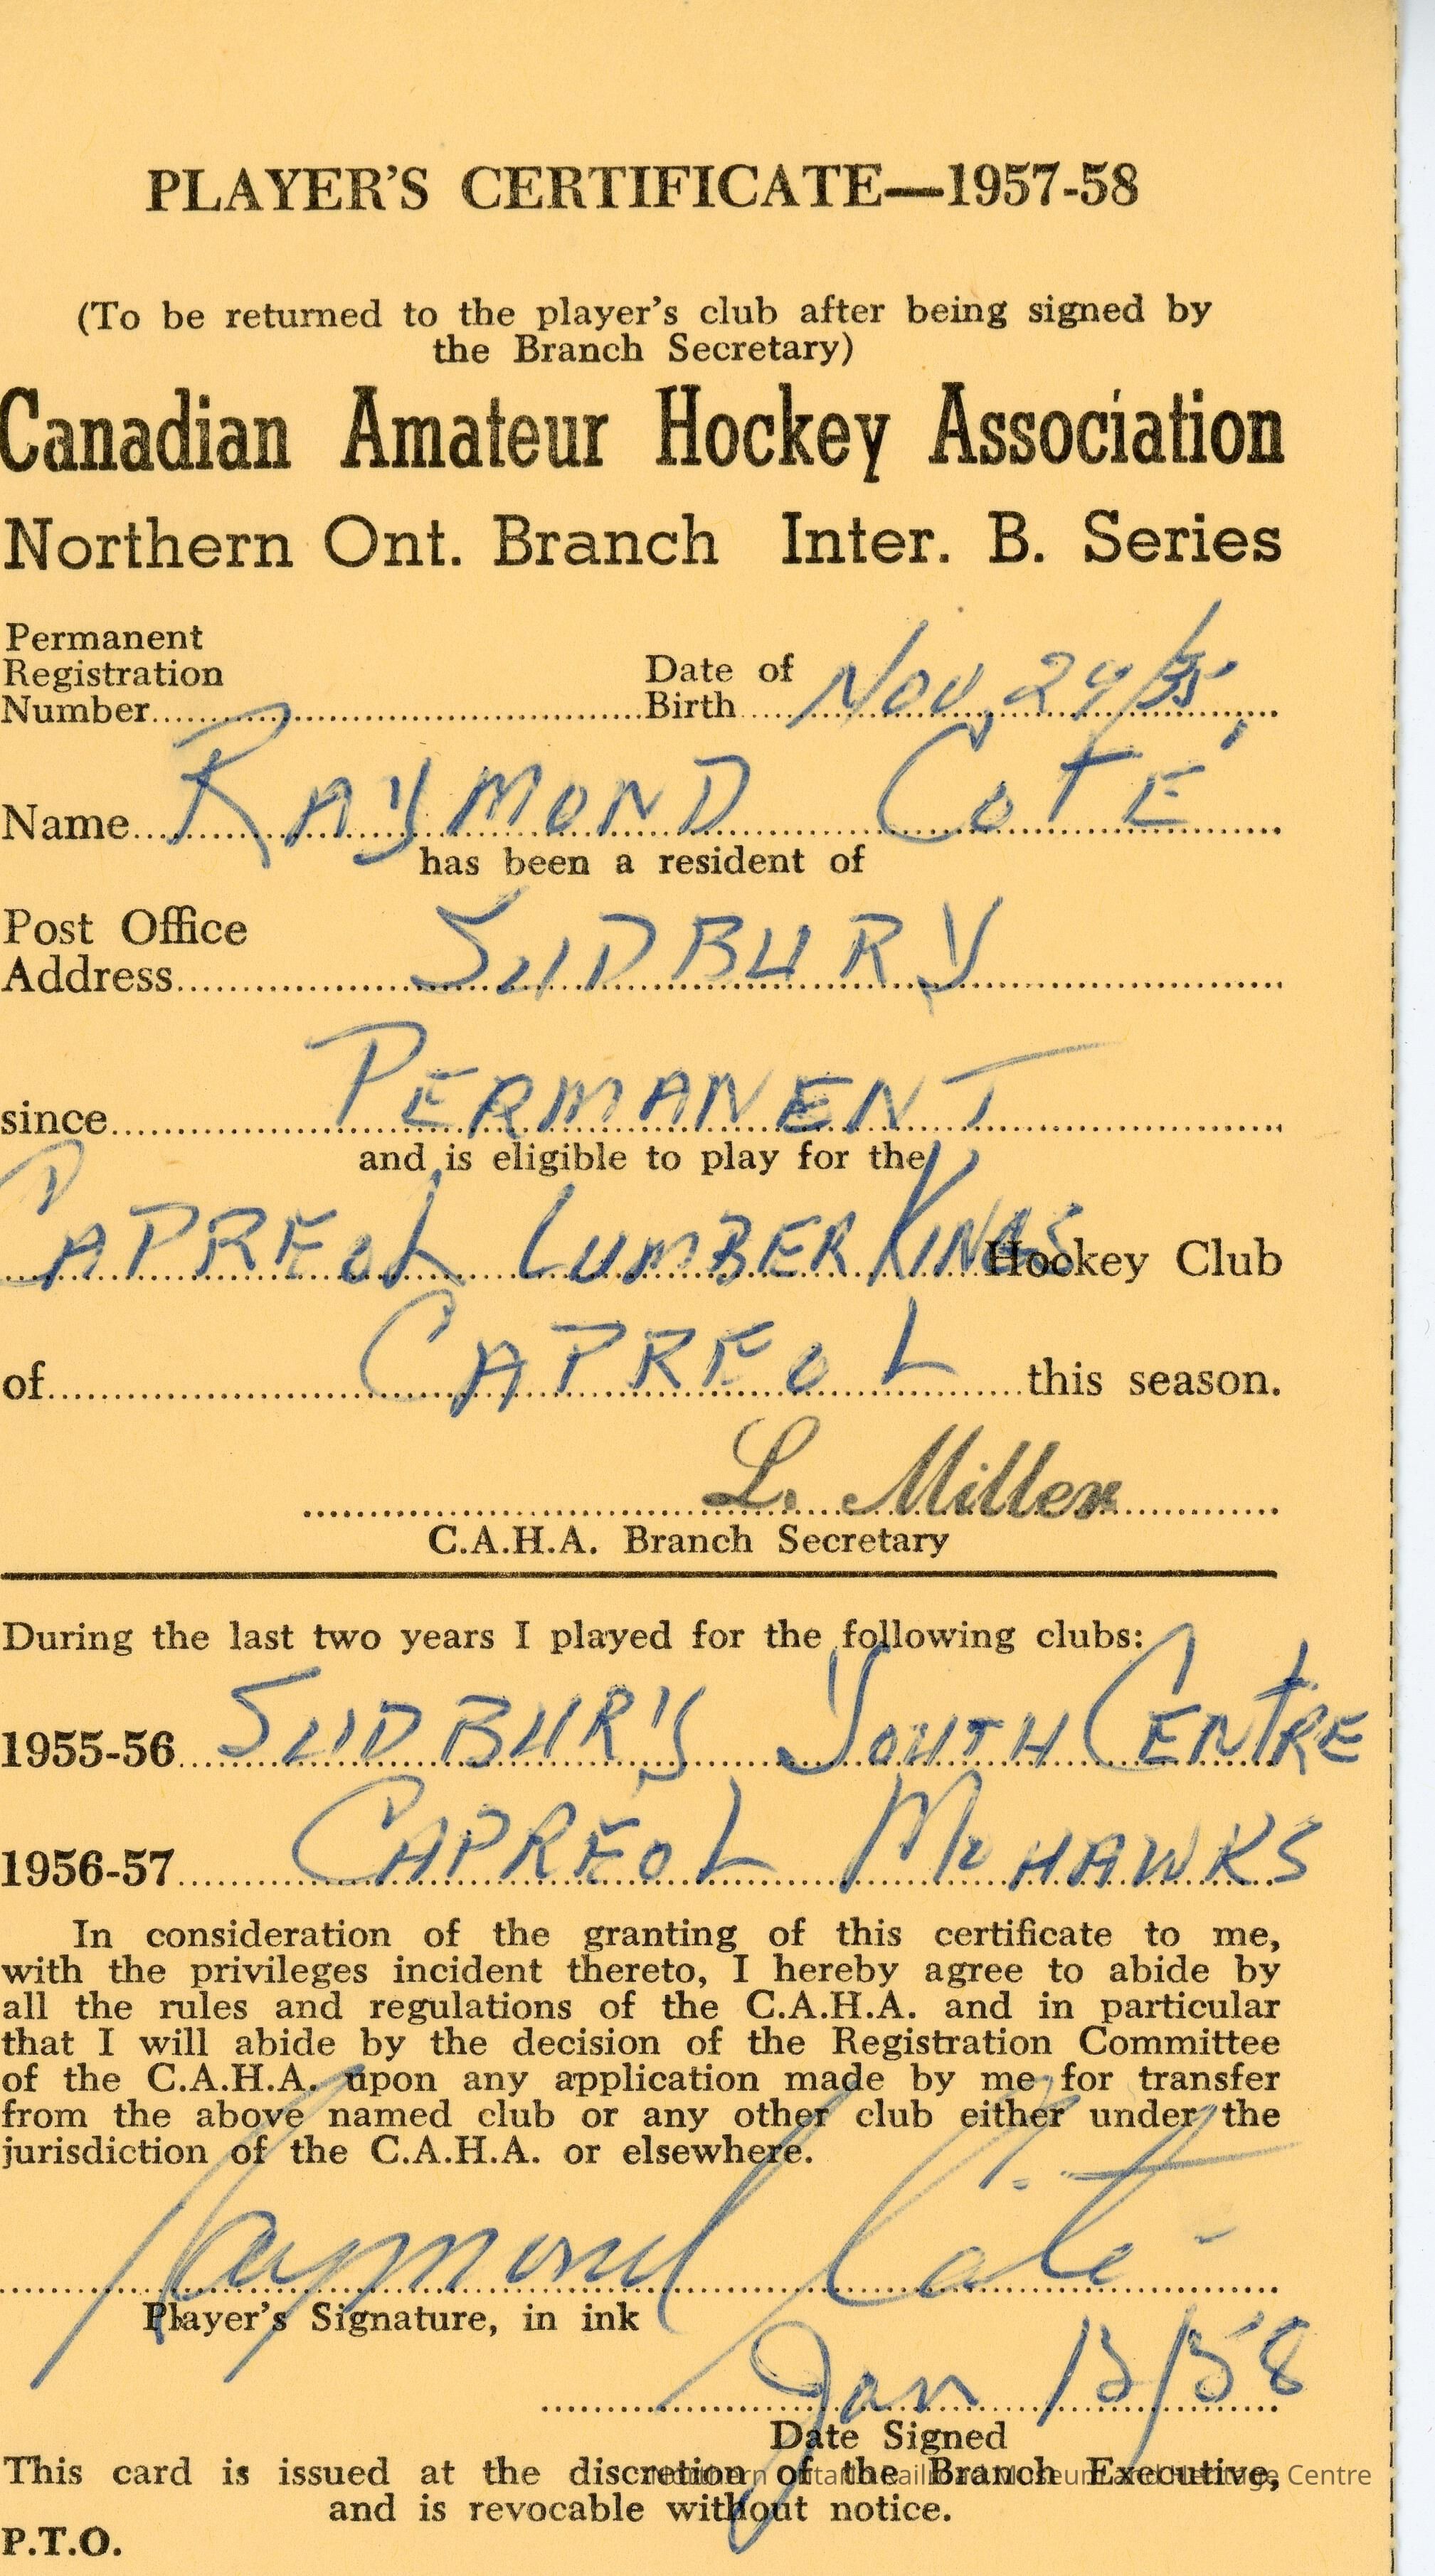 PLAYER'S CERTIFICATE—1957-58
(To be returned to the player's club after being signed by
the Branch Secretary)
Canadian Amateur Hockey Association
Northern Ont. Branch Inter. B. Series
Permanent
Registration
Number
Date of
Birth Nov, 29/35
Name RAYMOND COTÉ
has been a resident of
Post Office
Address SUDBURY
since PERMANENT
and is eligible to play for the
CAPREOL LUMBER KINGS Hockey Club
of CAPREOL this season.
L. Miller
C.A.H.A. Branch Secretary
During the last two years I played for the following clubs:
1955-56 SUDBURY YOUTH CENTRE
1956-57 CAPREOL MOHAWKS
In consideration of the granting of this certificate to me,
with the privileges incident thereto, I hereby agree to abide by
all the rules and regulations of the C.A.H.A. and in particular
that I will abide by the decision of the Registration Committee
of the C.A.H.A. upon any application made by me for transfer
from the above named club or any other club either under the
jurisdiction of the C.A.H.A. or elsewhere.
Raymond Coté
Player's Signature, in ink
Jan 13/58
Date Signed
This card is issued at the discretion of the Branch Executive,
Northern Ontario Railroad Museum and Heritage Centre
and is revocable without notice.
P.T.O.